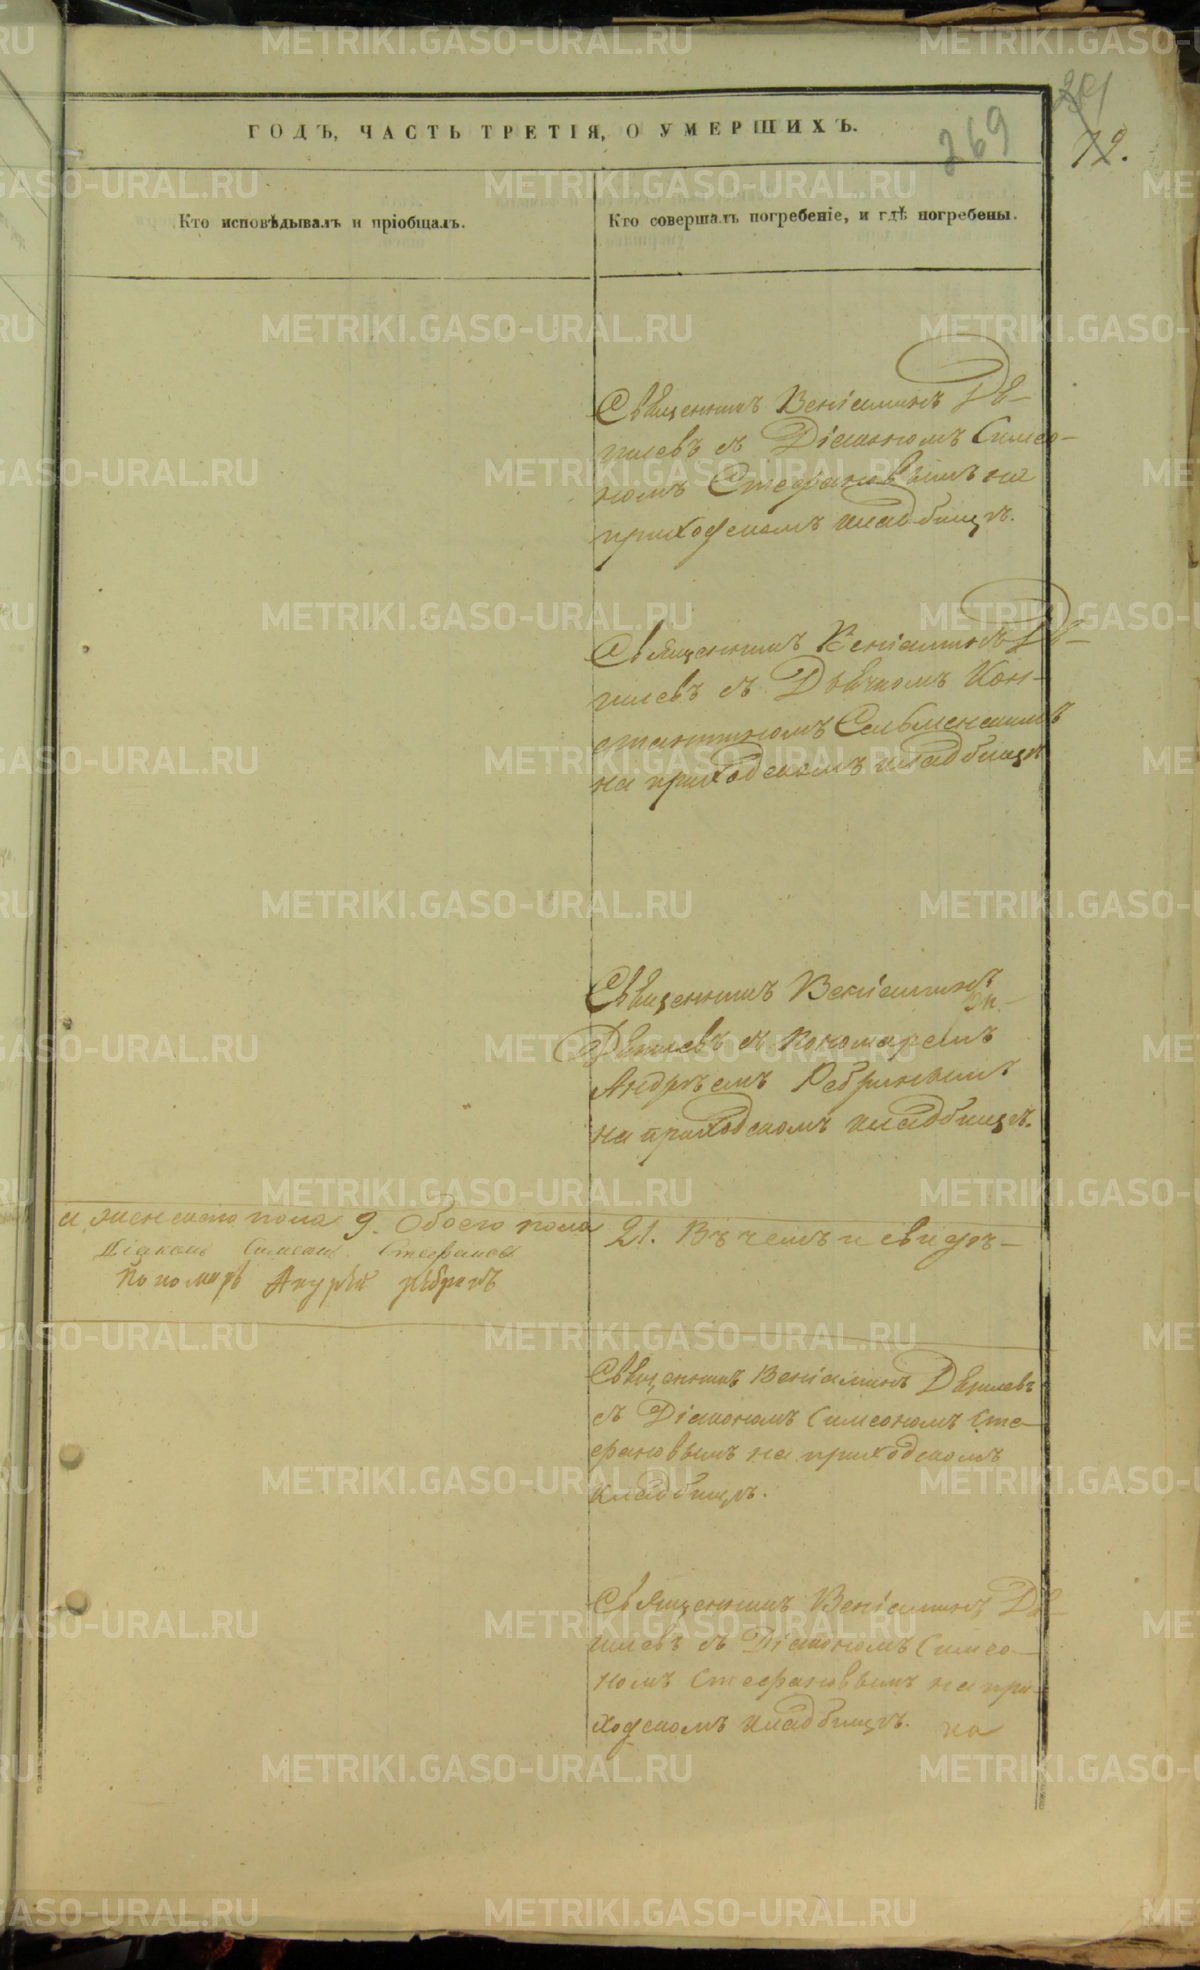 ГОДЪ, ЧАСТЬ ТРЕТІЯ, О УМЕРШИХЪ.
269
12.
Кто исповѣдывалъ и пріобщалъ.
Кто совершалъ погребеніе, и гдѣ погребены.
Священникъ Веніаминъ Дѣ-
пилевъ съ Діакономъ Симео-
номъ Стефановымъ на
приходскомъ кладбищѣ.
Священникъ Веніаминъ Дѣ-
пилевъ съ Дьячкомъ Кон-
стантиномъ Сельменскимъ
на приходскомъ кладбищѣ
Священникъ Веніаминъ
Дѣпилевъ съ Пономаремъ
Андреемъ Ребринымъ
на приходскомъ кладбищѣ.
и женскаго пола 9. Обоего пола 21. Въ чемъ и свидѣ-
Діаконъ Симеонъ Стефановъ
Пономарь Андрей
Священникъ Веніаминъ Дѣпилевъ
съ Діакономъ Симеономъ Сте-
фановымъ на приходскомъ
кладбищѣ.
Священникъ Веніаминъ Дѣ-
пилевъ съ Діакономъ Симео-
номъ Стефановымъ на при-
ходскомъ кладбищѣ. на
METRIKI.GASO-URAL.RU